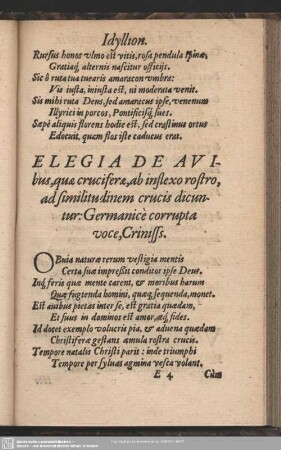 Idyllion.
Rursus honos vlmo est vitis, rosa pendula spinæ,
Gratiaq́; alternis nascitur officijs.
Sic ô ruta tua tuearis amaracon vmbra:
Vis iusta, iniusta est, ni moderata venit.
Sis mihi ruta Deus, sed amaracus ipse, venenum
Illyrici in porcos, Pontificisq́; sues.
Sæpè aliquis florens hodie est, sed crastinus ortus
Edocuit, quàm flos iste caducus erat.
ELEGIA DE AVI
bus, quæ cruciferæ, ab inflexo rostro,
ad similitudinem crucis dicun-
tur: Germanicè corrupta
voce, Crinisss.
OBuia naturæ rerum vestigia mentis
Certa suæ impressit conditor ipse Deus.
Inq́; feris quæ mente carent, & moribus harum
Quæ fugienda homini, quæq́; sequenda, monet.
Est auibus pietas inter se, est gratia quædam,
Et suus in dominos est amor, atq́; fides.
Id docet exemplo volucris pia, & aduena quædam
Christiferæ gestans æmula rostra crucis.
Tempore natalis Christi parit: inde triumphi
Tempore per syluas agmina vesta volant.
E 4 Cùm